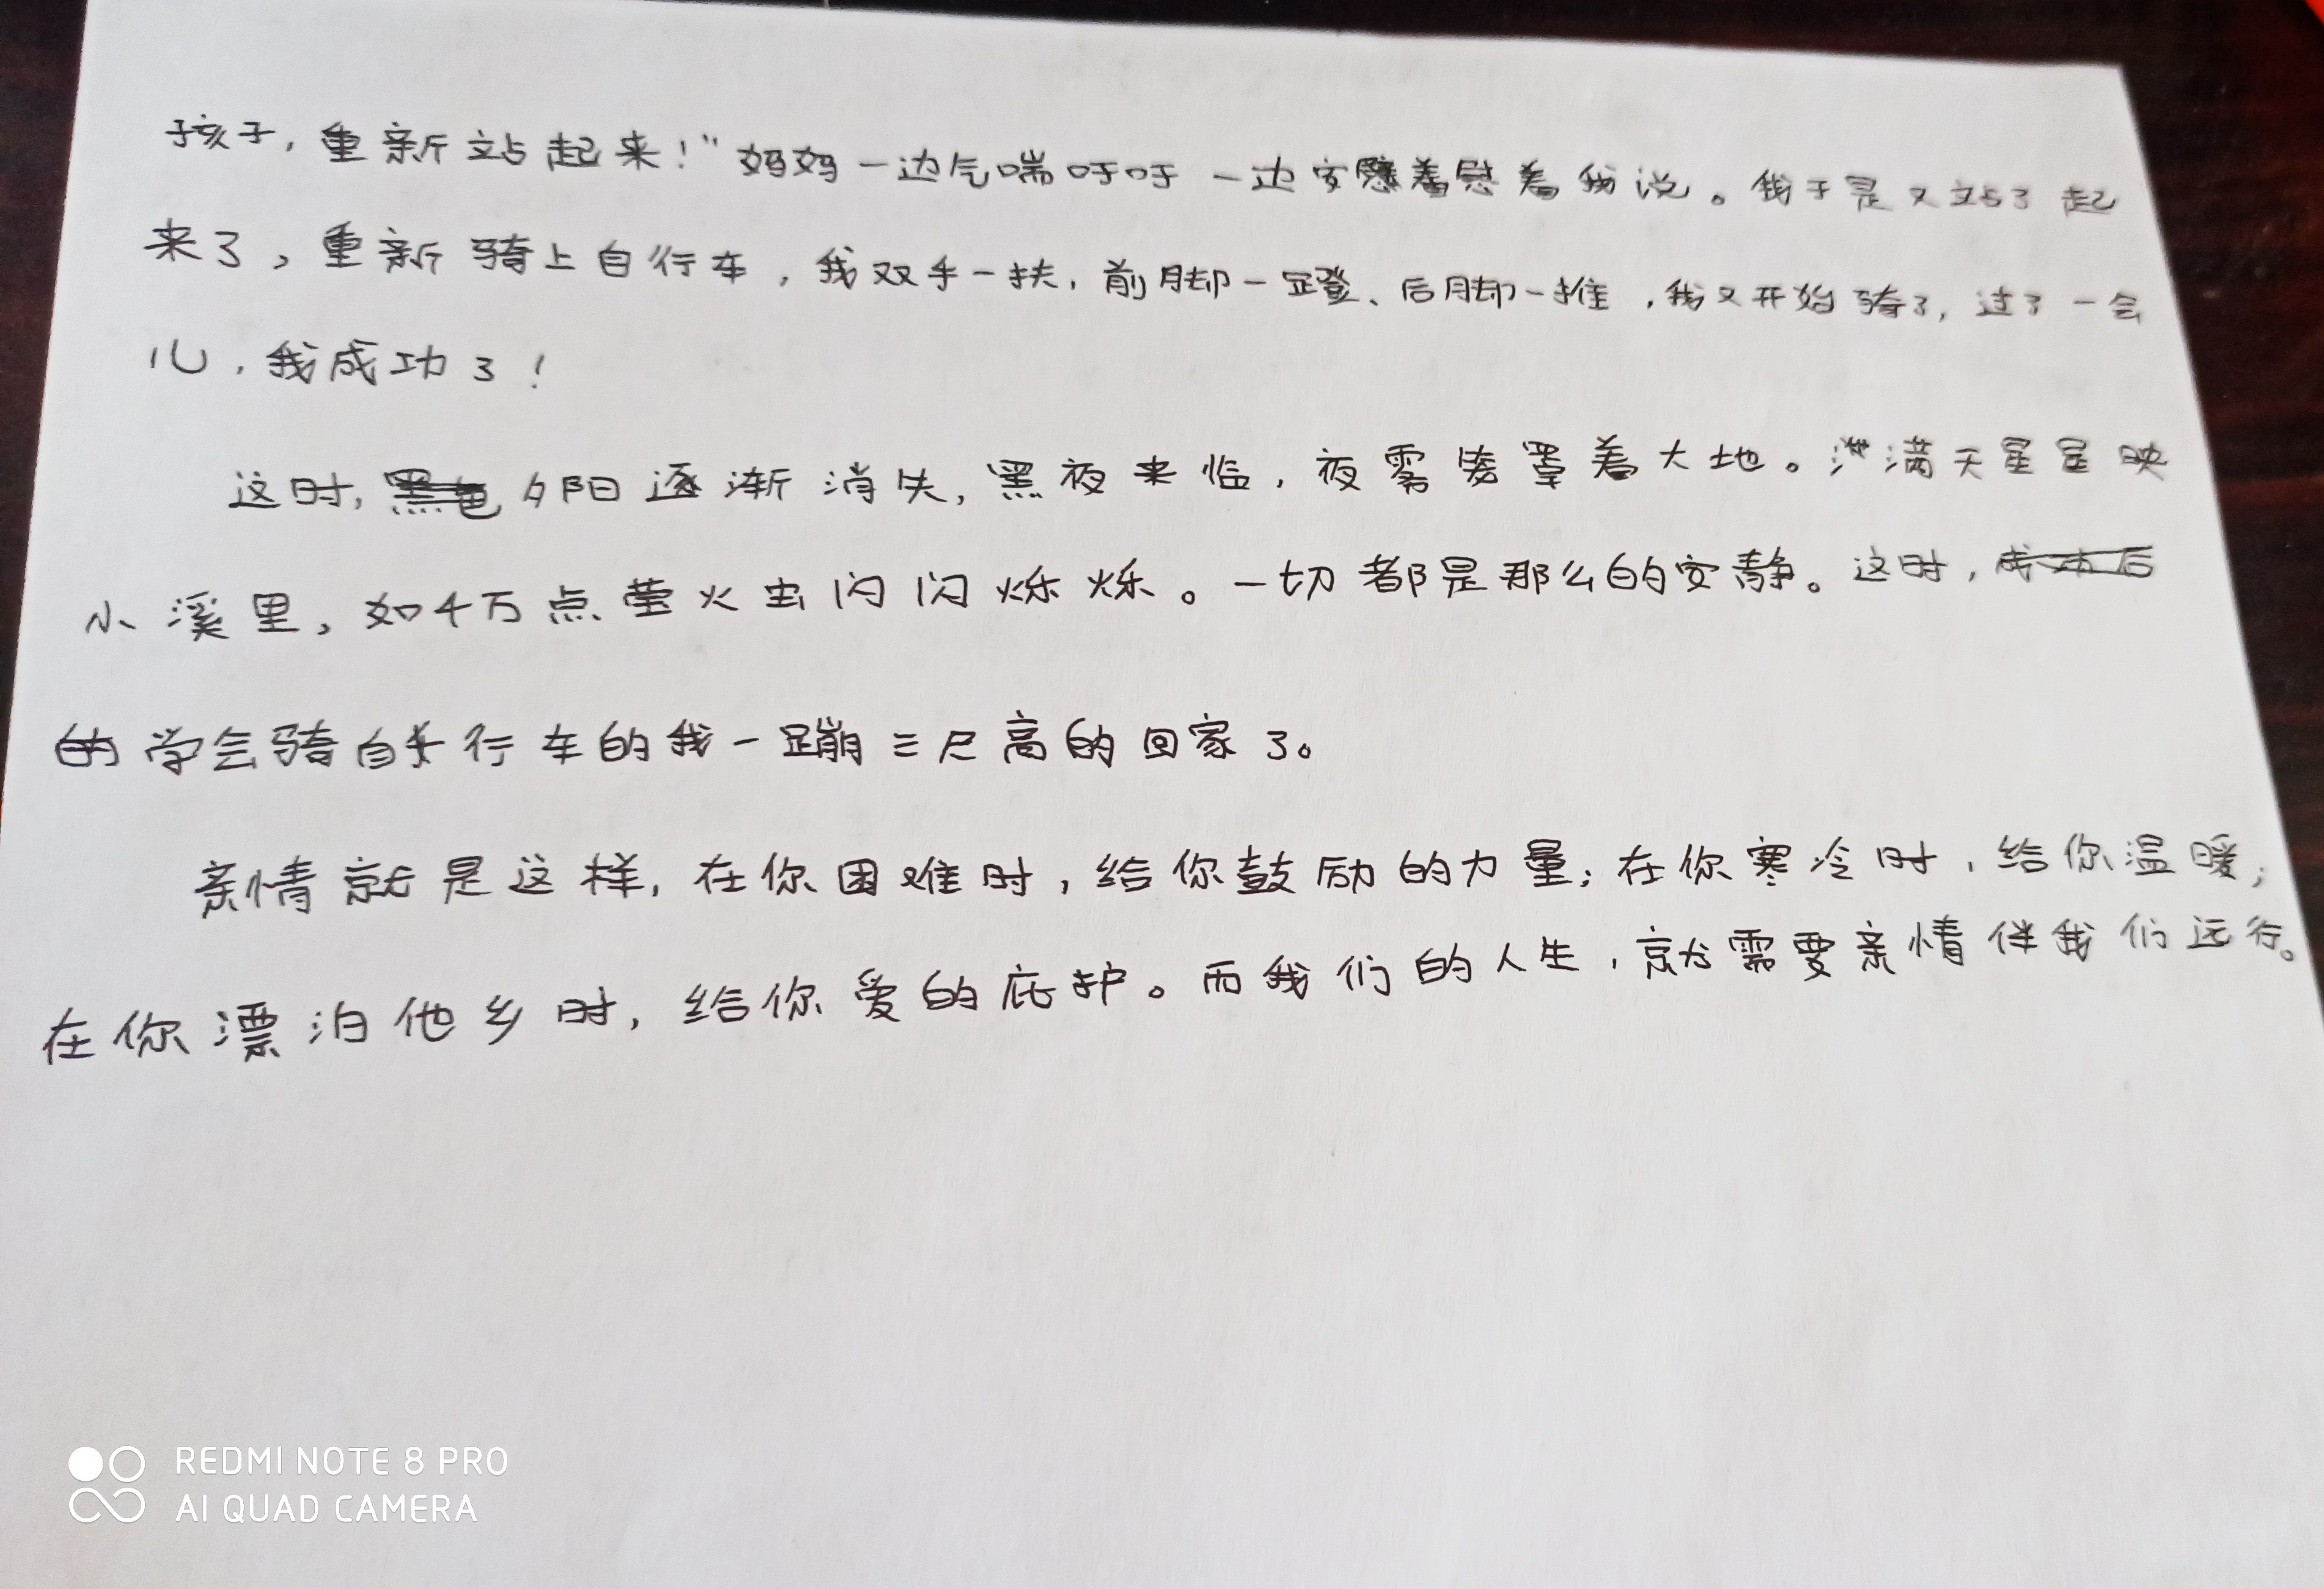 孩子，重新站起来！”妈妈一边气喘吁吁一边安慰着我说。我于是又站了起
来了，重新骑上自行车，我双手一扶，前脚一蹬、后脚一推，我又开始骑了，过了一会
儿，我成功了！
这时，夕阳逐渐消失，黑夜来临，夜雾笼罩着大地。满天星星映
小溪里，如千万点萤火虫闪闪烁烁。一切都是那么的安静。这时，
学会骑自行车的我一蹦三尺高的回家了。
亲情就是这样，在你困难时，给你鼓励的力量；在你寒冷时，给你温暖；
在你漂泊他乡时，给你爱的庇护。而我们的人生，就需要亲情伴我们远行。
REDMI NOTE 8 PRO
AI QUAD CAMERA